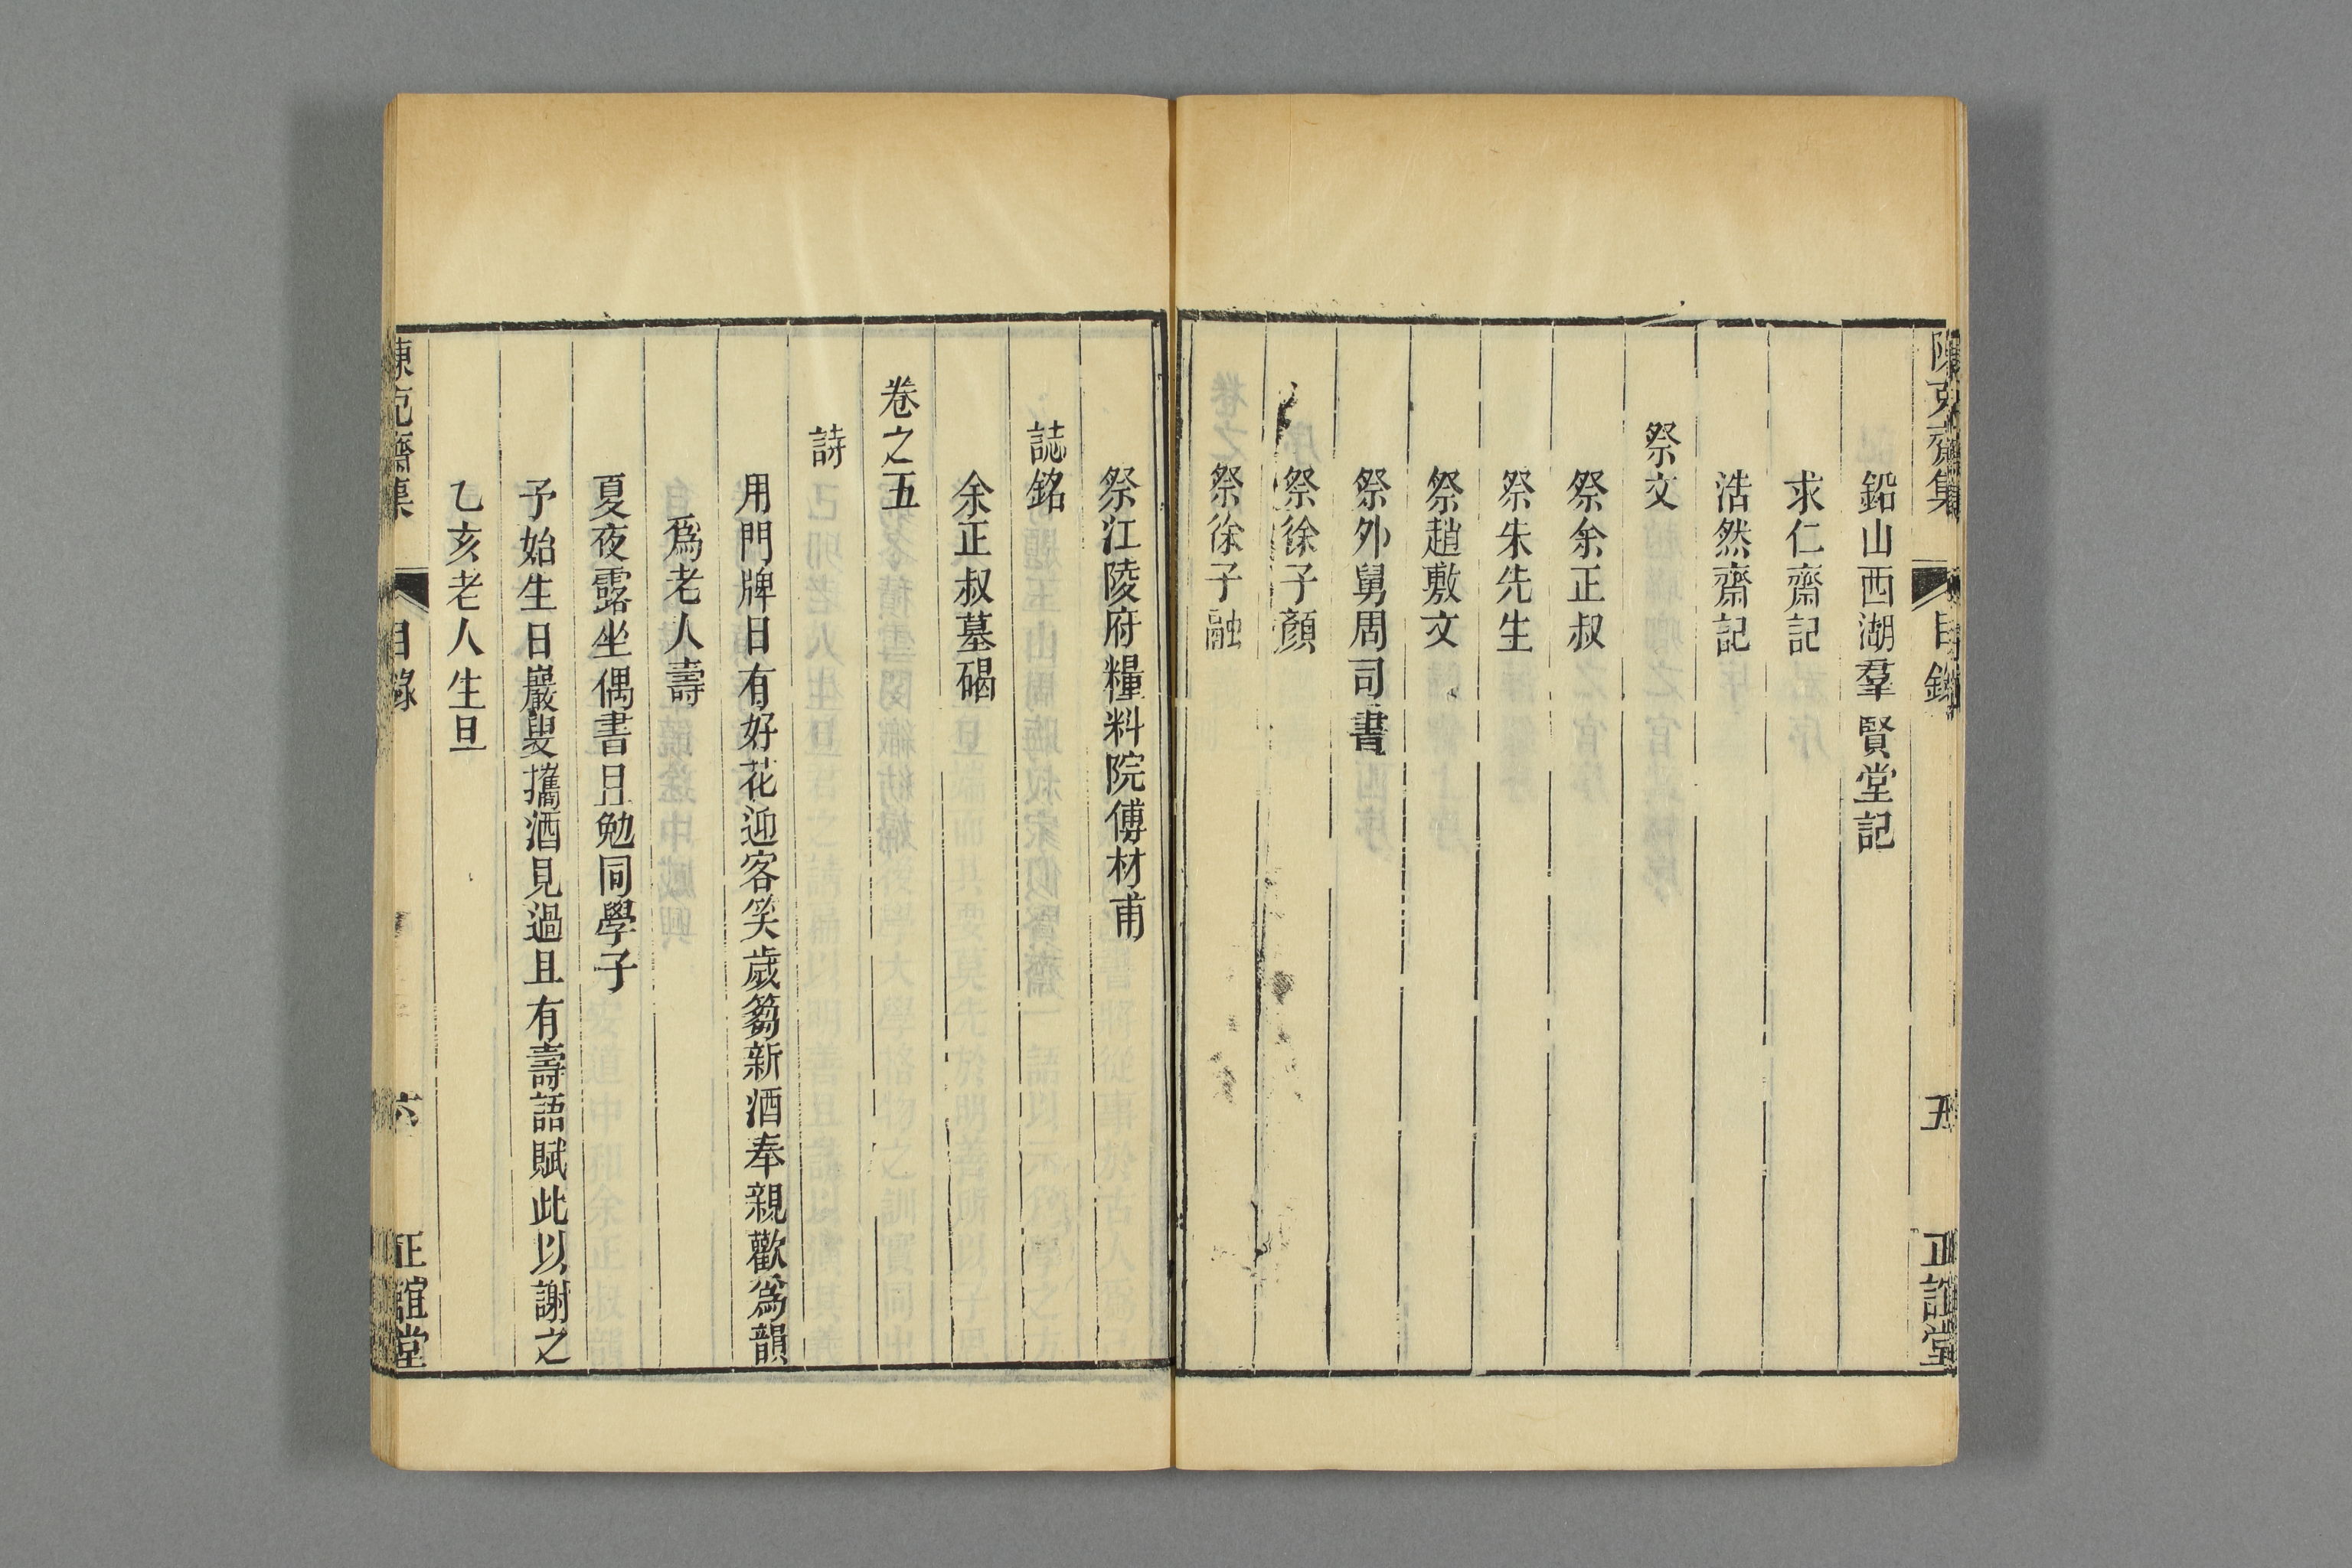 陳克齋集 目錄 五 正誼堂
鉛山西湖羣賢堂記
求仁齋記
浩然齋記
祭文
祭余正叔
祭朱先生
祭趙敷文
祭外舅周司書
祭徐子顏
祭徐子融
祭江陵府糧料院傅材甫
誌銘
余正叔墓碣
卷之五
詩
用門牌日有好花迎客笑歲篘新酒奉親歡為韻
為老人壽
夏夜露坐偶書且勉同學子
予始生日嚴叟攜酒見過且有壽語賦此以謝之
乙亥老人生旦
陳克齋集 目錄 六 正誼堂